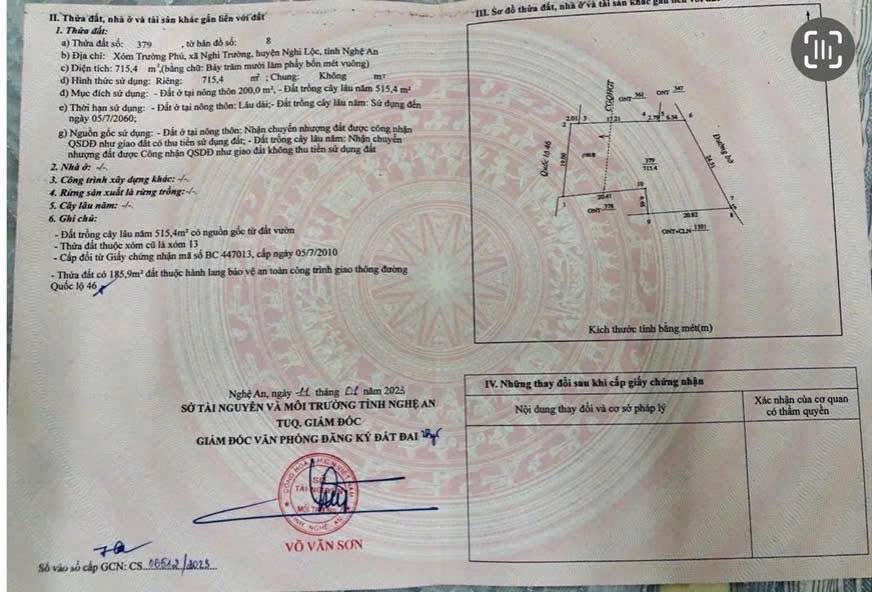 II. Thửa đất, nhà ở và tài sản khác gắn liền với đất
1. Thửa đất:
a) Thửa đất số: 379 , tờ bản đồ số: 8
b) Địa chỉ: Xóm Trường Phú, xã Nghi Trường, huyện Nghi Lộc, tỉnh Nghệ An
c) Diện tích: 715,4 m²,(bằng chữ: Bảy trăm mười lăm phẩy bốn mét vuông)
d) Hình thức sử dụng: Riêng: 715,4 m² ; Chung: Không m²
đ) Mục đích sử dụng: - Đất ở tại nông thôn 200,0 m², - Đất trồng cây lâu năm 515,4 m²
e) Thời hạn sử dụng: - Đất ở tại nông thôn: Lâu dài;- Đất trồng cây lâu năm: Sử dụng đến
ngày 05/7/2060;
g) Nguồn gốc sử dụng: - Đất ở tại nông thôn: Nhận chuyển nhượng đất được công nhận
QSDĐ như giao đất có thu tiền sử dụng đất; - Đất trồng cây lâu năm: Nhận chuyển
nhượng đất được Công nhận QSDĐ như giao đất không thu tiền sử dụng đất
2. Nhà ở: -/-.
3. Công trình xây dựng khác: -/-.
4. Rừng sản xuất là rừng trồng:-/-.
5. Cây lâu năm: -/-.
6. Ghi chú:
- Đất trồng cây lâu năm 515,4m² có nguồn gốc từ đất vườn
- Thửa đất thuộc xóm cũ là xóm 13
- Cấp đổi từ Giấy chứng nhận mã số BC 447013, cấp ngày 05/7/2010
- Thửa đất có 185,9m² đất thuộc hành lang bảo vệ an toàn công trình giao thông đường
Quốc lộ 46
Nghệ An, ngày 11 tháng 01 năm 2023
SỞ TÀI NGUYÊN VÀ MÔI TRƯỜNG TỈNH NGHỆ AN
TUQ. GIÁM ĐỐC
GIÁM ĐỐC VĂN PHÒNG ĐĂNG KÝ ĐẤT ĐAI
VÕ VĂN SƠN
Số vào sổ cấp GCN: CS 00512/2023
III. Sơ đồ thửa đất, nhà ở và tài sản khác gắn liền với đất
CGQHGT
ONT 361
ONT 347
2 2.01 3 17.21 4 2.79 5 6.54 6
Quốc lộ 46
19.80
Đường bê
24.51
379
715.4
20.41 10
1
ONT 378
9 20.82 8
7
ONT+CLN 1331
Kích thước tính bằng mét(m)
IV. Những thay đổi sau khi cấp giấy chứng nhận
Nội dung thay đổi và cơ sở pháp lý
Xác nhận của cơ quan
có thẩm quyền